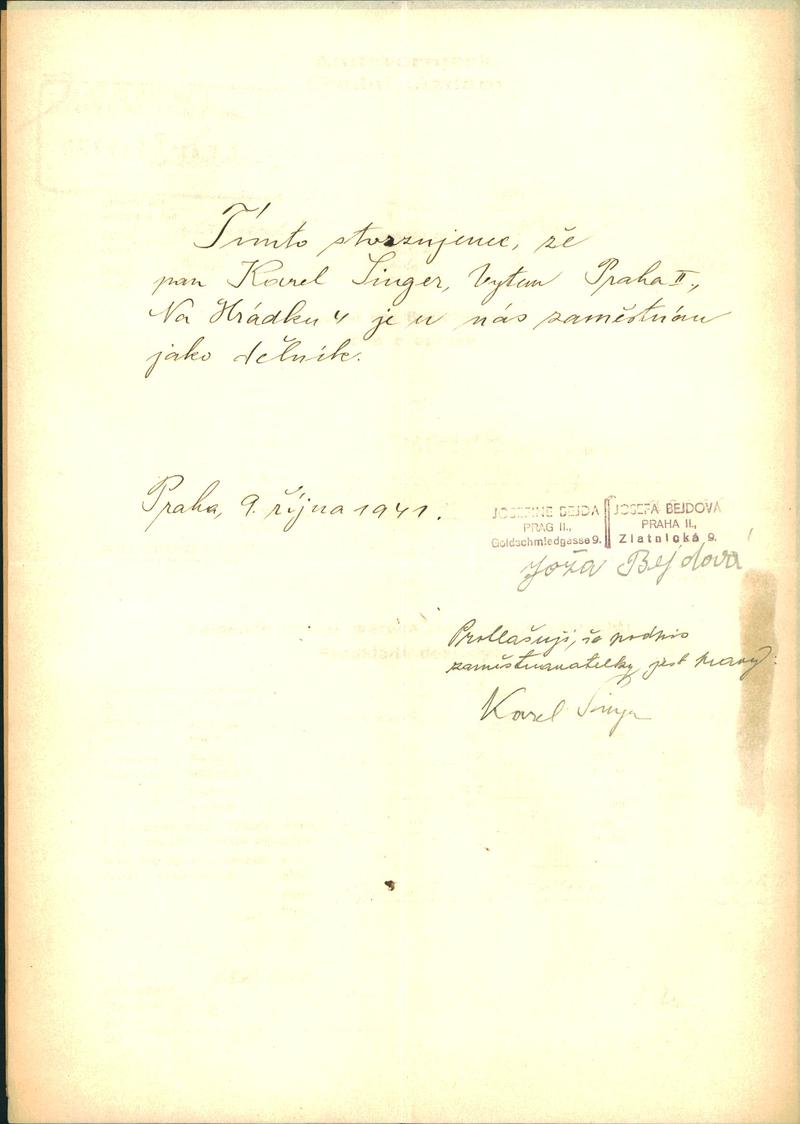 Tímto stvrzujeme, že
pan Karel Singer, bytem Praha II.,
Na Hrádku 4 je u nás zaměstnán
jako dělník.
Praha, 9. října 1941.
JOSEFINE BEJDA
PRAG II.,
Goldschmiedgasse 9.
JOSEFA BEJDOVÁ
PRAHA II.,
Zlatnická 9.
Joža Bejdová
Prohlašuji, že podpis
zaměstnavatelky jest pravý:
Karel Singer